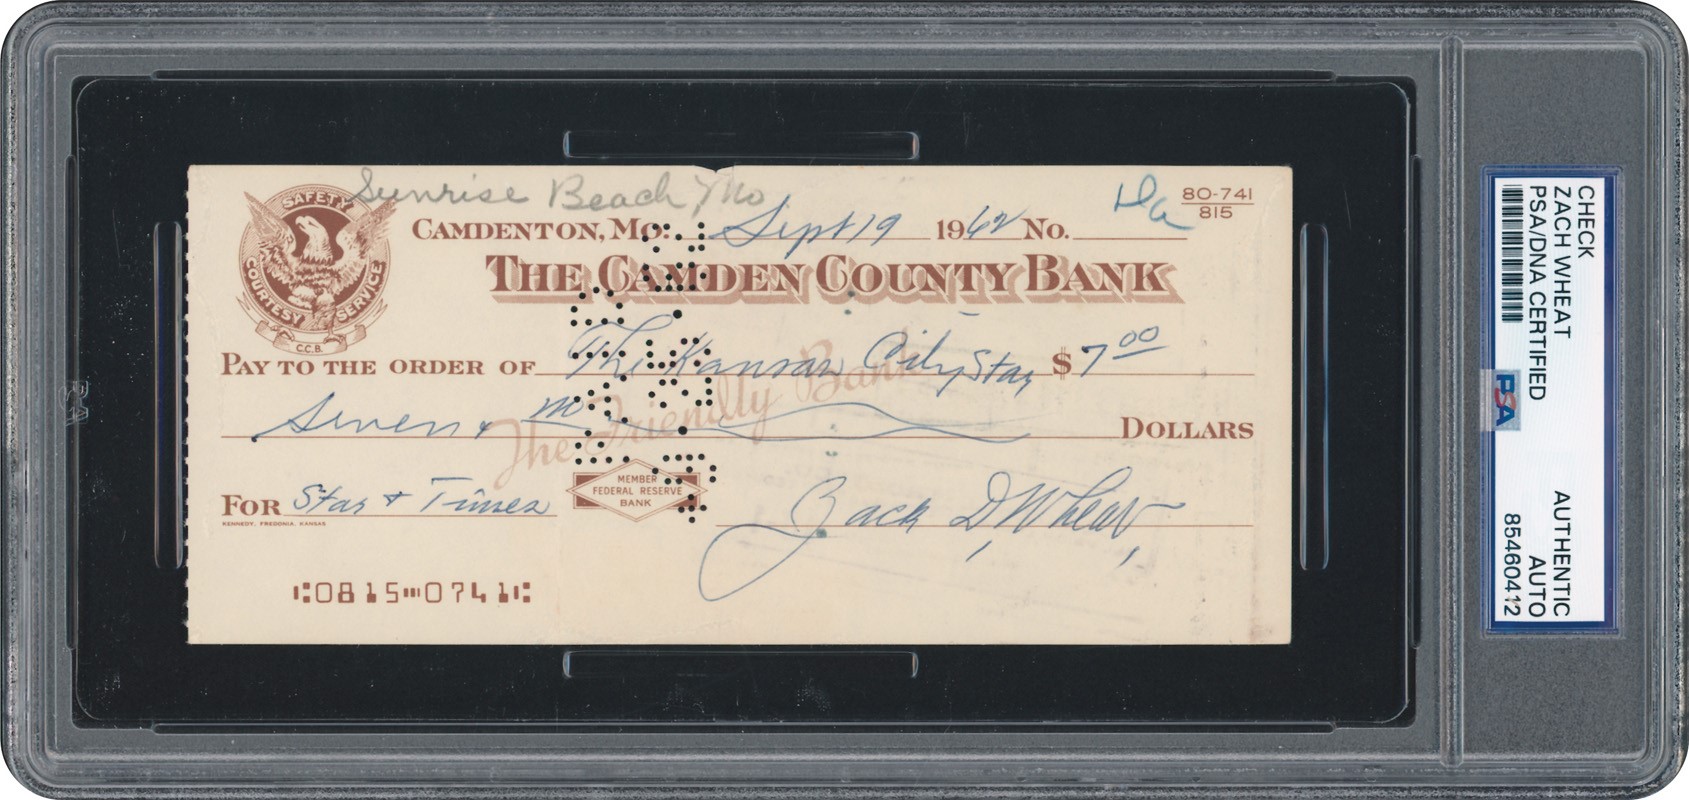 Sunrise Beach, Mo
Da
80-741
815
SAFETY
COURTESY SERVICE
C.C.B.
CAMDENTON, MO. Sept 19 1962 NO.
THE CAMDEN COUNTY BANK
PAY TO THE ORDER OF The Kansas City Star $ 7 00
Seven & no DOLLARS
The Friendly Bank
MEMBER
FEDERAL RESERVE
BANK
FOR Star & Times
Zack D. Wheat
KENNEDY, FREDONIA, KANSAS
⑆0815⑉0741⑆
CHECK
ZACH WHEAT
PSA/DNA CERTIFIED
PSA
AUTHENTIC
AUTO
85460412